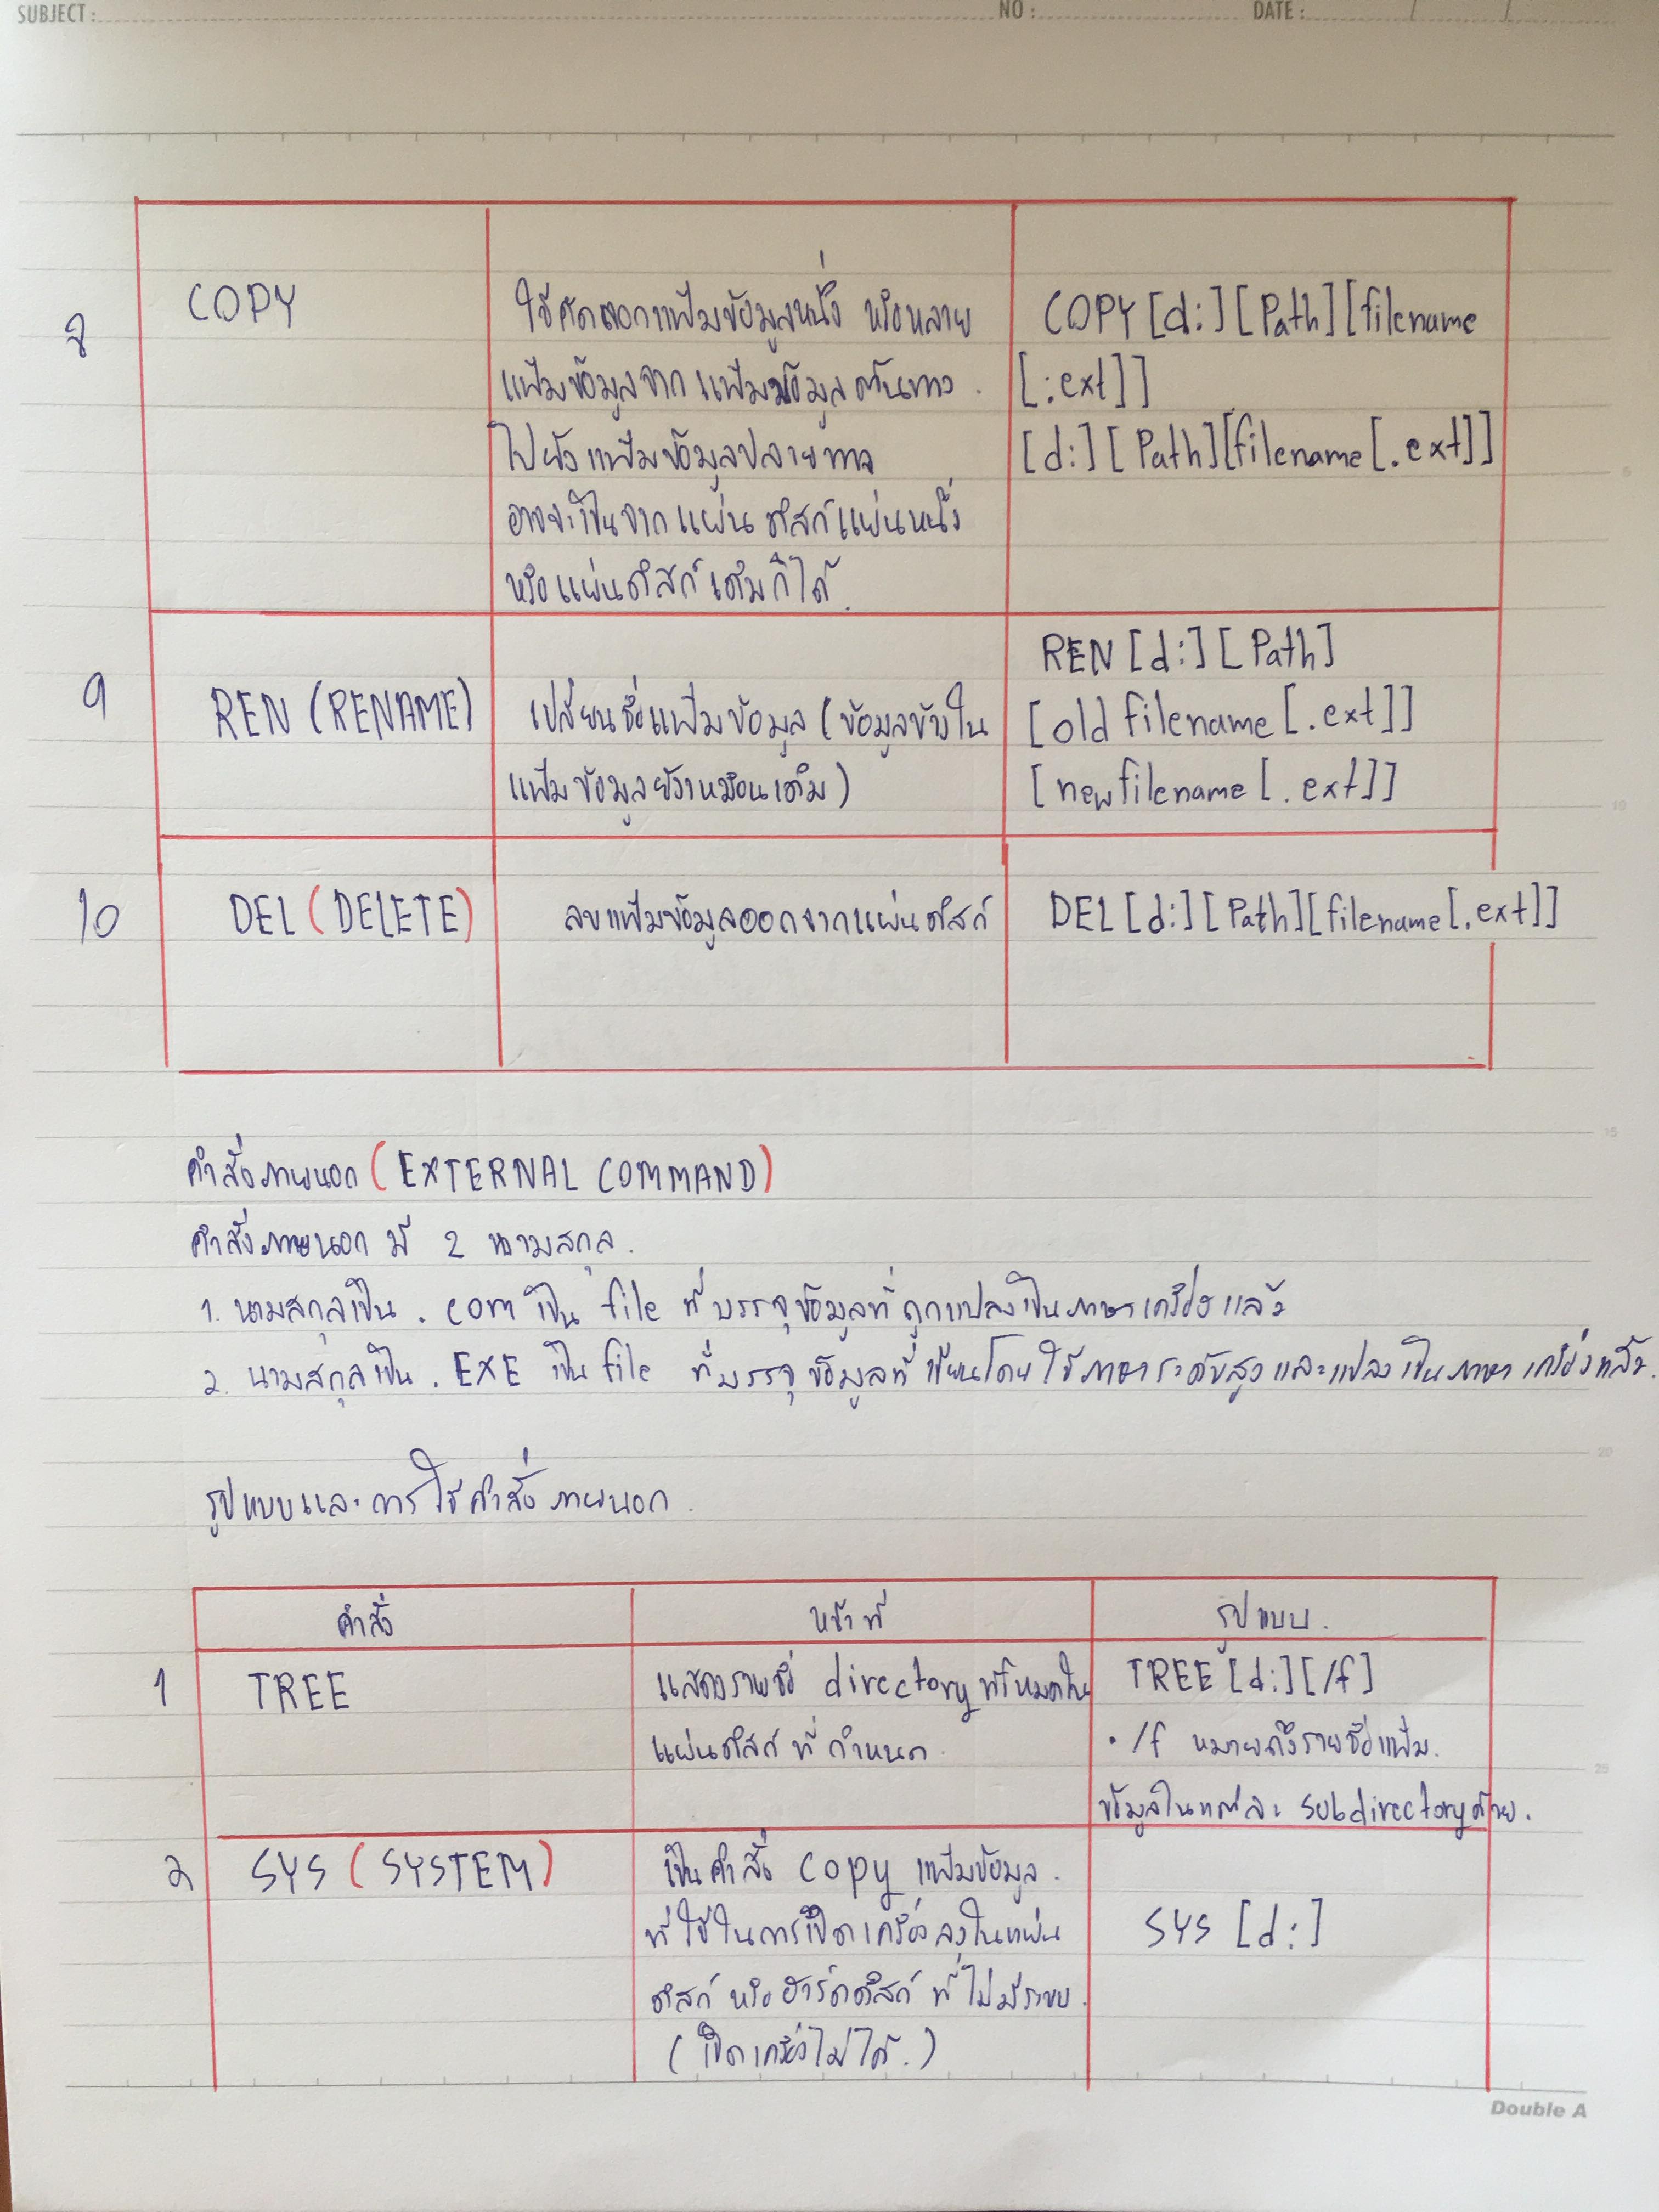 SUBJECT : NO : DATE : / /
8 COPY ใช้คัดลอกแฟ้มข้อมูลหนึ่ง หรือหลาย COPY [d:][Path][filename
แฟ้มข้อมูลจากแฟ้มข้อมูลต้นทาง [:ext]]
ไปยังแฟ้มข้อมูลปลายทาง [d:][Path][filename[.ext]]
อาจจะเป็นจากแผ่นดิสก์แผ่นหนึ่ง
หรือแผ่นดิสก์เดิมก็ได้.
REN [d:][Path]
9 REN (RENAME) เปลี่ยนชื่อแฟ้มข้อมูล (ข้อมูลข้างใน [old filename[.ext]]
แฟ้มข้อมูลยังเหมือนเดิม) [newfilename[.ext]]
10 DEL (DELETE) ลบแฟ้มข้อมูลออกจากแผ่นดิสก์ DEL [d:][Path][filename[.ext]]
คำสั่งภายนอก (EXTERNAL COMMAND)
คำสั่งภายนอก มี 2 นามสกุล.
1. นามสกุลเป็น .com เป็น file ที่บรรจุข้อมูลที่ถูกแปลงเป็นภาษาเครื่องแล้ว
2. นามสกุลเป็น .EXE เป็น file ที่บรรจุข้อมูลที่เขียนโดยใช้ภาษาระดับสูงและแปลงเป็นภาษาเครื่องแล้ว.
รูปแบบและการใช้คำสั่งภายนอก.
คำสั่ง หน้าที่ รูปแบบ.
1 TREE แสดงรายชื่อ directory ทั้งหมดใน TREE [d:][/f]
แผ่นดิสก์ที่กำหนด. • /f หมายถึงรายชื่อแฟ้ม.
ข้อมูลในแต่ละ subdirectory ด้วย.
2 SYS (SYSTEM) เป็นคำสั่ง copy แฟ้มข้อมูล.
ที่ใช้ในการเปิดเครื่องลงในแผ่น SYS [d:]
ดิสก์ หรือ ฮาร์ดดิสก์ ที่ไม่มีระบบ.
(เปิดเครื่องไม่ได้.)
Double A